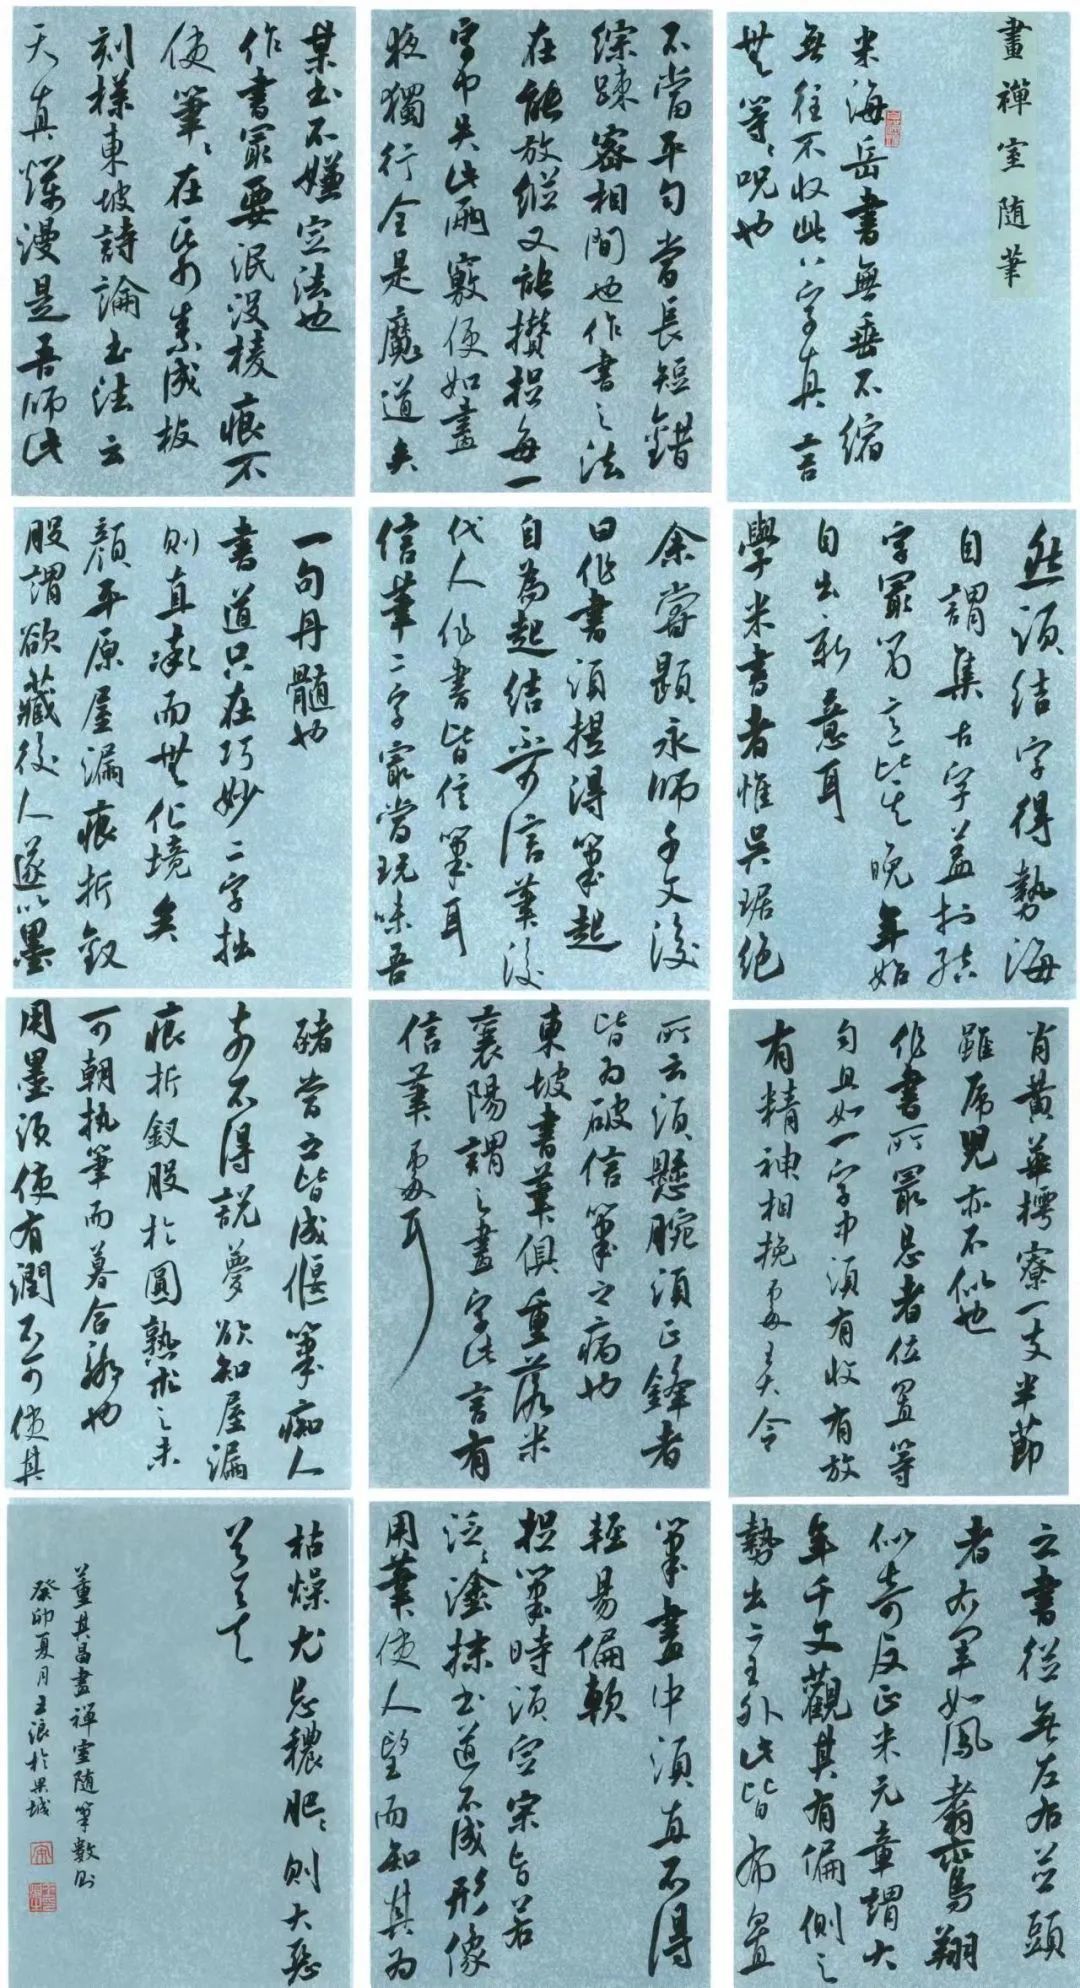 畫禪室随筆
米海岳書無垂不縮
無往不收此八字真言
無等〻呪也
然須结字得勢海
自謂集古字盖於结
字冣留意比其晚年始
自出新意耳
學米書者惟吴琚绝
肖黄華樗寮一支半節
雖虎兒亦不似也
作書所冣忌者位置等
匀且如一字中須有收有放
有精神相挽處王大令
之書從無左右並頭
者右軍如鳳翥鸞翔
似奇反正米元章謂大
年千文觀其有偏側之
勢出二王外此皆布置
不當平匀當長短錯
綜踈密相間也作書之法
在能放縱又能攒捉每一
字中失此兩竅便如晝
夜獨行全是魔道矣
余嘗題永師千文後
曰作書須提得筆起
自為起结不可信筆後
代人作書皆信筆耳
信筆二字冣當玩味吾
所云須懸腕須正鋒者
皆為破信筆之病也
東坡書筆俱重落米
襄陽謂之畫字此言有
信筆處耳
筆畫中須直不得
輕易偏軟
捉筆時須定宗旨若
泛〻塗抹书道不成形像
用筆使人望而知其為
某书不嫌定法也
作書冣要泯没棱痕不
使筆〻在紙素成板
刻樣東坡詩論书法云
天真爛漫是吾師此
一句丹髓也
書道只在巧妙二字拙
则直率而無化境矣
顔平原屋漏痕折釵
股謂欲藏後人遂以墨
豬當之皆成偃筆痴人
前不得説夢欲知屋漏
痕折釵股於圓熟求之未
可朝執筆而暮合轍也
用墨須使有潤不可使其
枯燥尤忌穠肥〻则大惡
道矣
董其昌畫禪室随筆數则
癸卯夏月王浪於果城